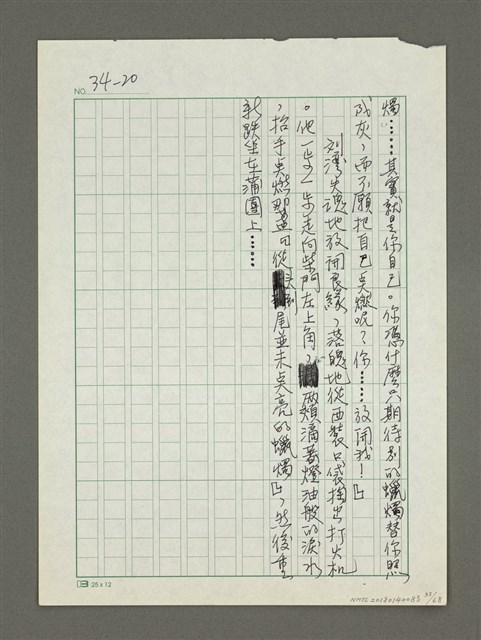 NO. 34-20
燭……其實就是你自己。你憑什麼只期待別的蠟燭替你照
成灰，而不願把自己点燃呢？你……放開我！」
劉濤失魂地放開良緣，落魄地從西裝口袋掏出打火机
。他一步一步走向柴門左上角，兩頰滴著燈油般的淚水
，抬手点燃那盞「從頭到尾並未点亮的蠟燭」，然後重
新跌坐在蒲團上……
25x12
NMTL20180140085 33/68